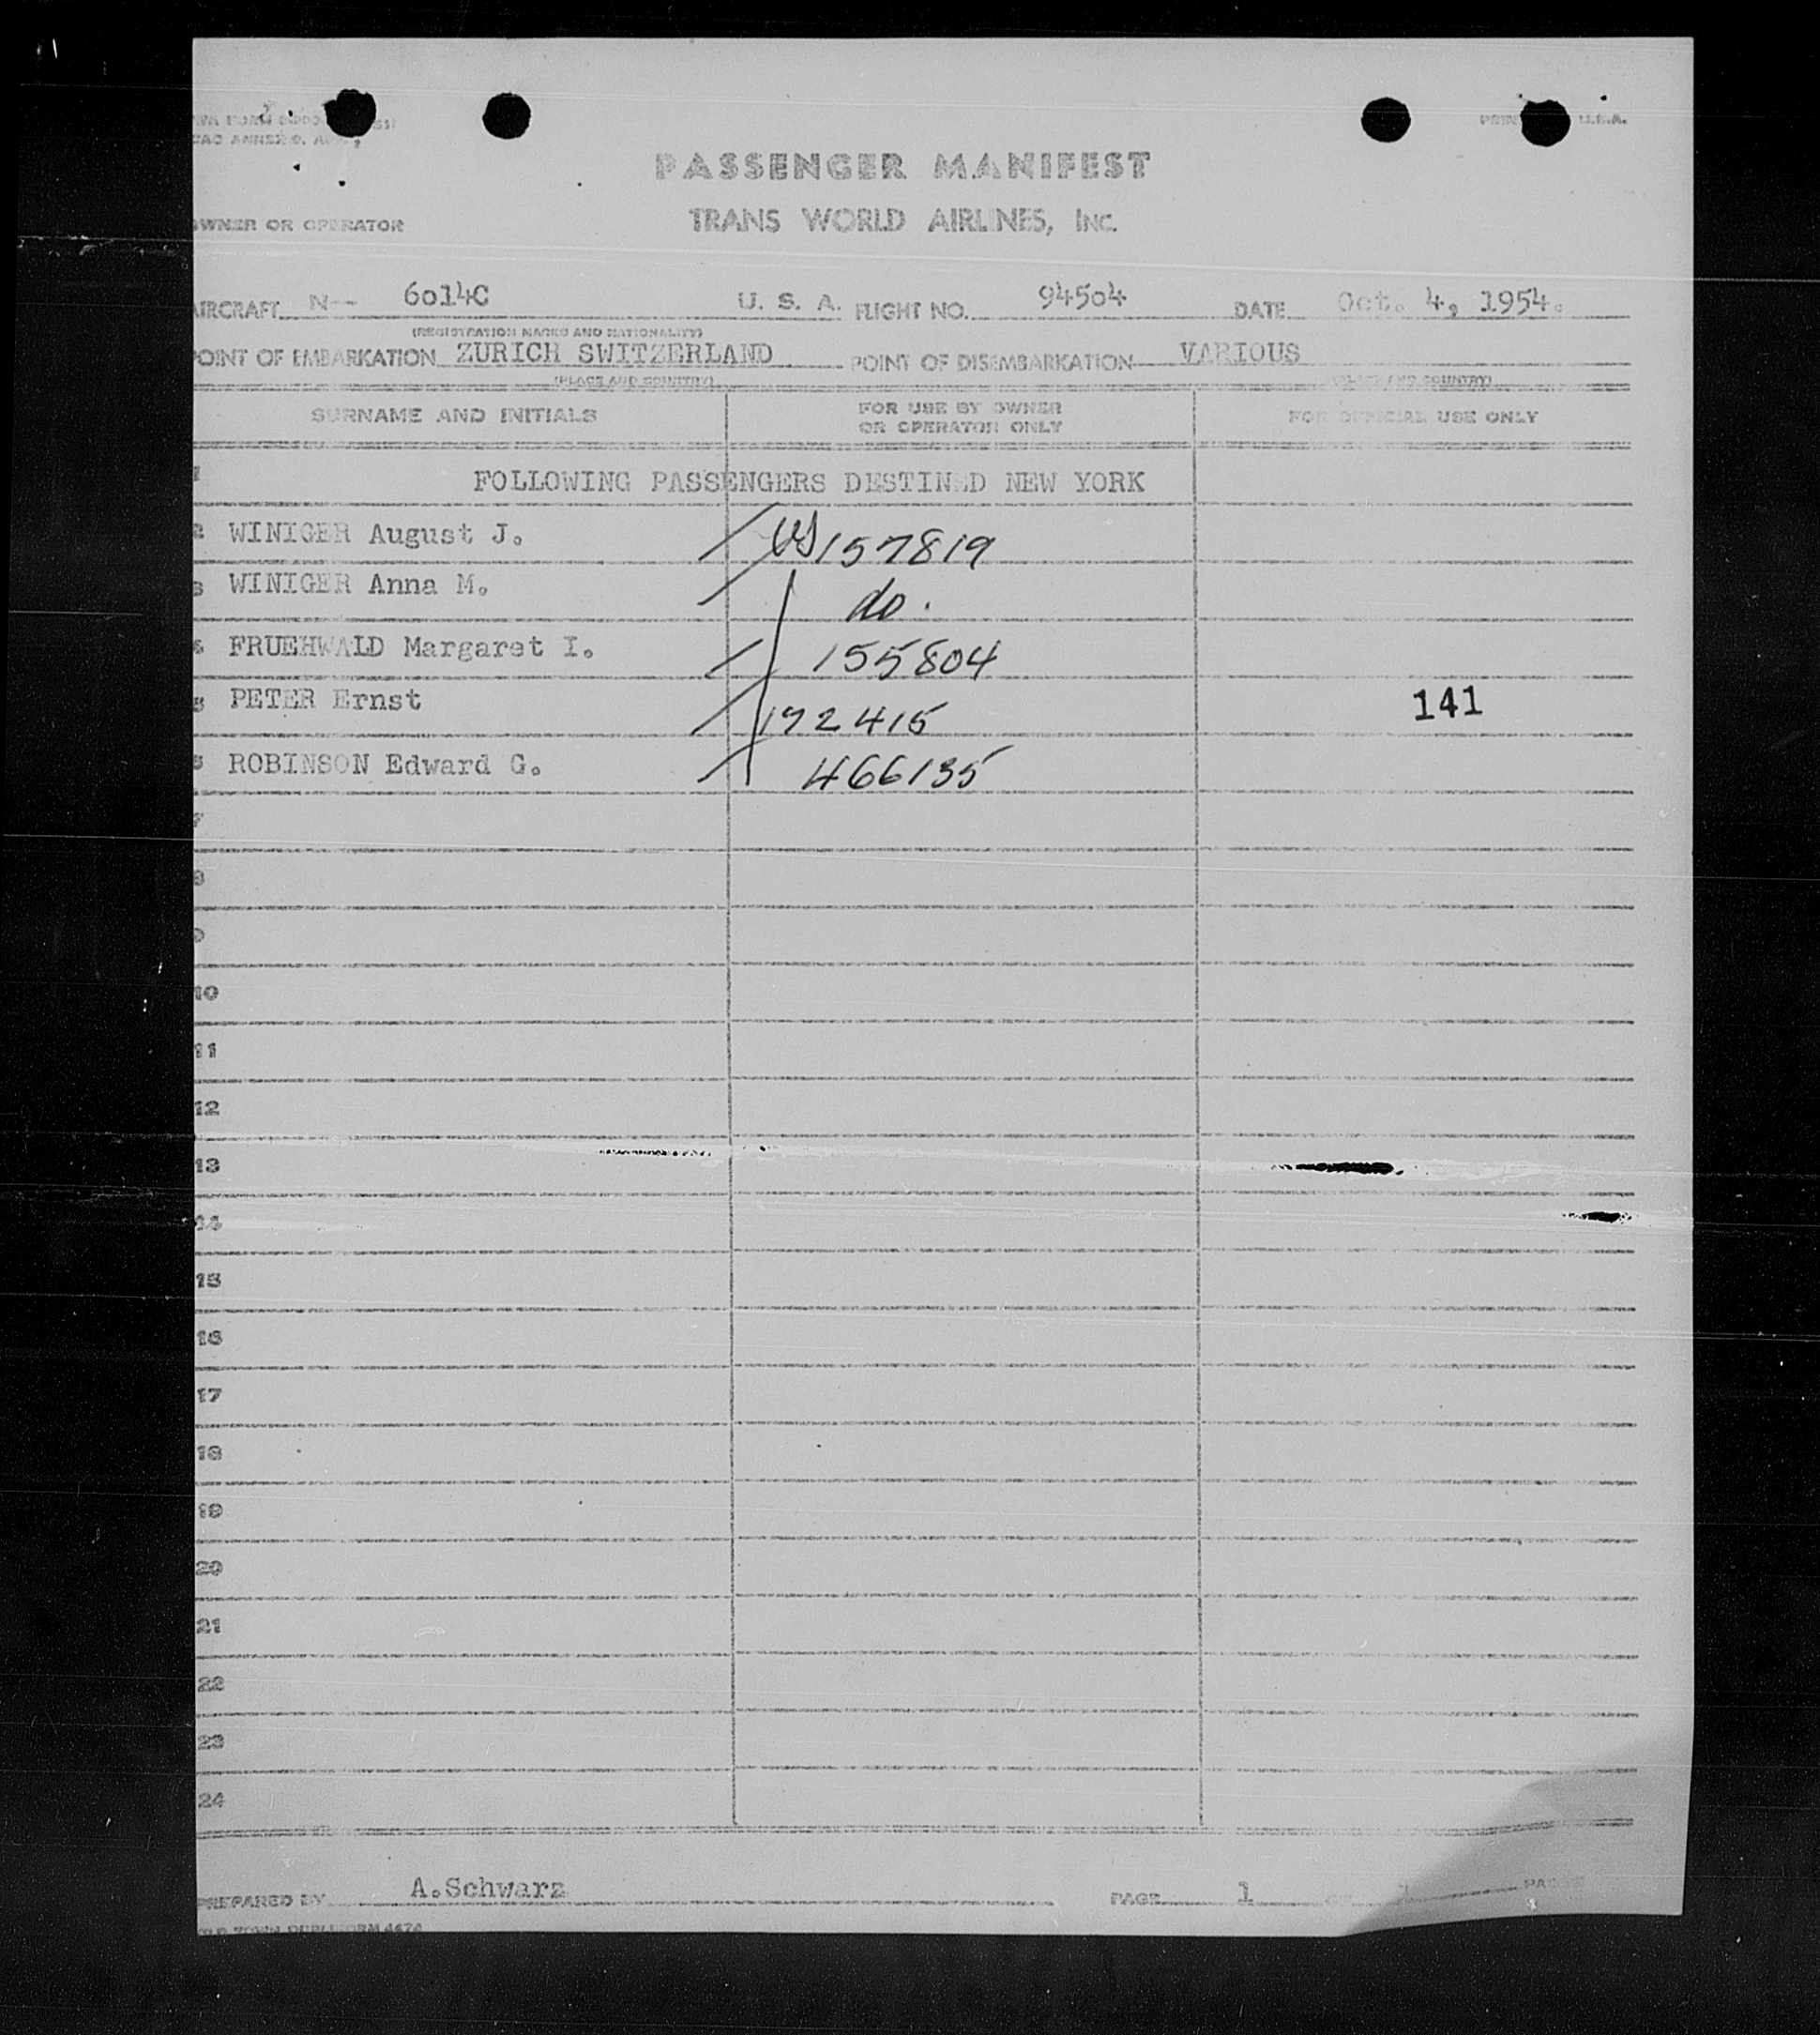 PASSENGER MANIFEST
OWNER OR OPERATOR TRANS WORLD AIRLINES, INC.
AIRCRAFT N-- 6014C U. S. A. FLIGHT NO. 94504 DATE Oct. 4, 1954.
(REGISTRATION MARKS AND NATIONALITY)
POINT OF EMBARKATION ZURICH SWITZERLAND POINT OF DISEMBARKATION VARIOUS
(PLACE AND COUNTRY) COUNTRY)
SURNAME AND INITIALS FOR USE BY OWNER OR OPERATOR ONLY FOR OFFICIAL USE ONLY
1 FOLLOWING PASSENGERS DESTINED NEW YORK
2 WINIGER August J. 157819
3 WINIGER Anna M. do.
FRUEHWALD Margaret I. 155804
PETER Ernst 172415 141
ROBINSON Edward G. 466135
7
8
9
10
11
12
13
14
15
16
17
18
19
20
21
22
23
24
PREPARED BY A.Schwarz PAGE 1